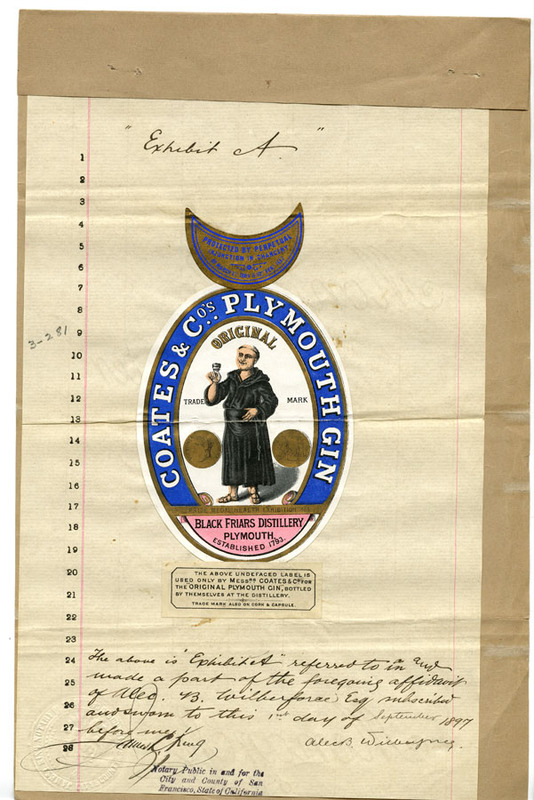 "Exhibit A"
1
2
3
4
5
6
7
8
9
10
11
12
13
14
15
16
17
18
19
20
21
22
23
24
25
26
27
28
3-281
PROTECTED BY PERPETUAL
INJUNCTION IN CHANCERY
COATES & CO'S. PLYMOUTH GIN
ORIGINAL
TRADE MARK
BLACK FRIARS DISTILLERY,
PLYMOUTH.
ESTABLISHED 1793.
THE ABOVE UNDEFACED LABEL IS
USED ONLY BY MESSRS COATES & CO FOR
THE ORIGINAL PLYMOUTH GIN, BOTTLED
BY THEMSELVES AT THE DISTILLERY.
TRADE MARK ALSO ON CORK & CAPSULE.
The above is "Exhibit A" referred to in and
made a part of the foregoing affidavit
of Alec. B. Wilberforce Esq subscribed
and sworn to this 1st day of September 1897
before me
Alec B. Wilberforce
Notary Public in and for the
City and County of San
Francisco, State of California